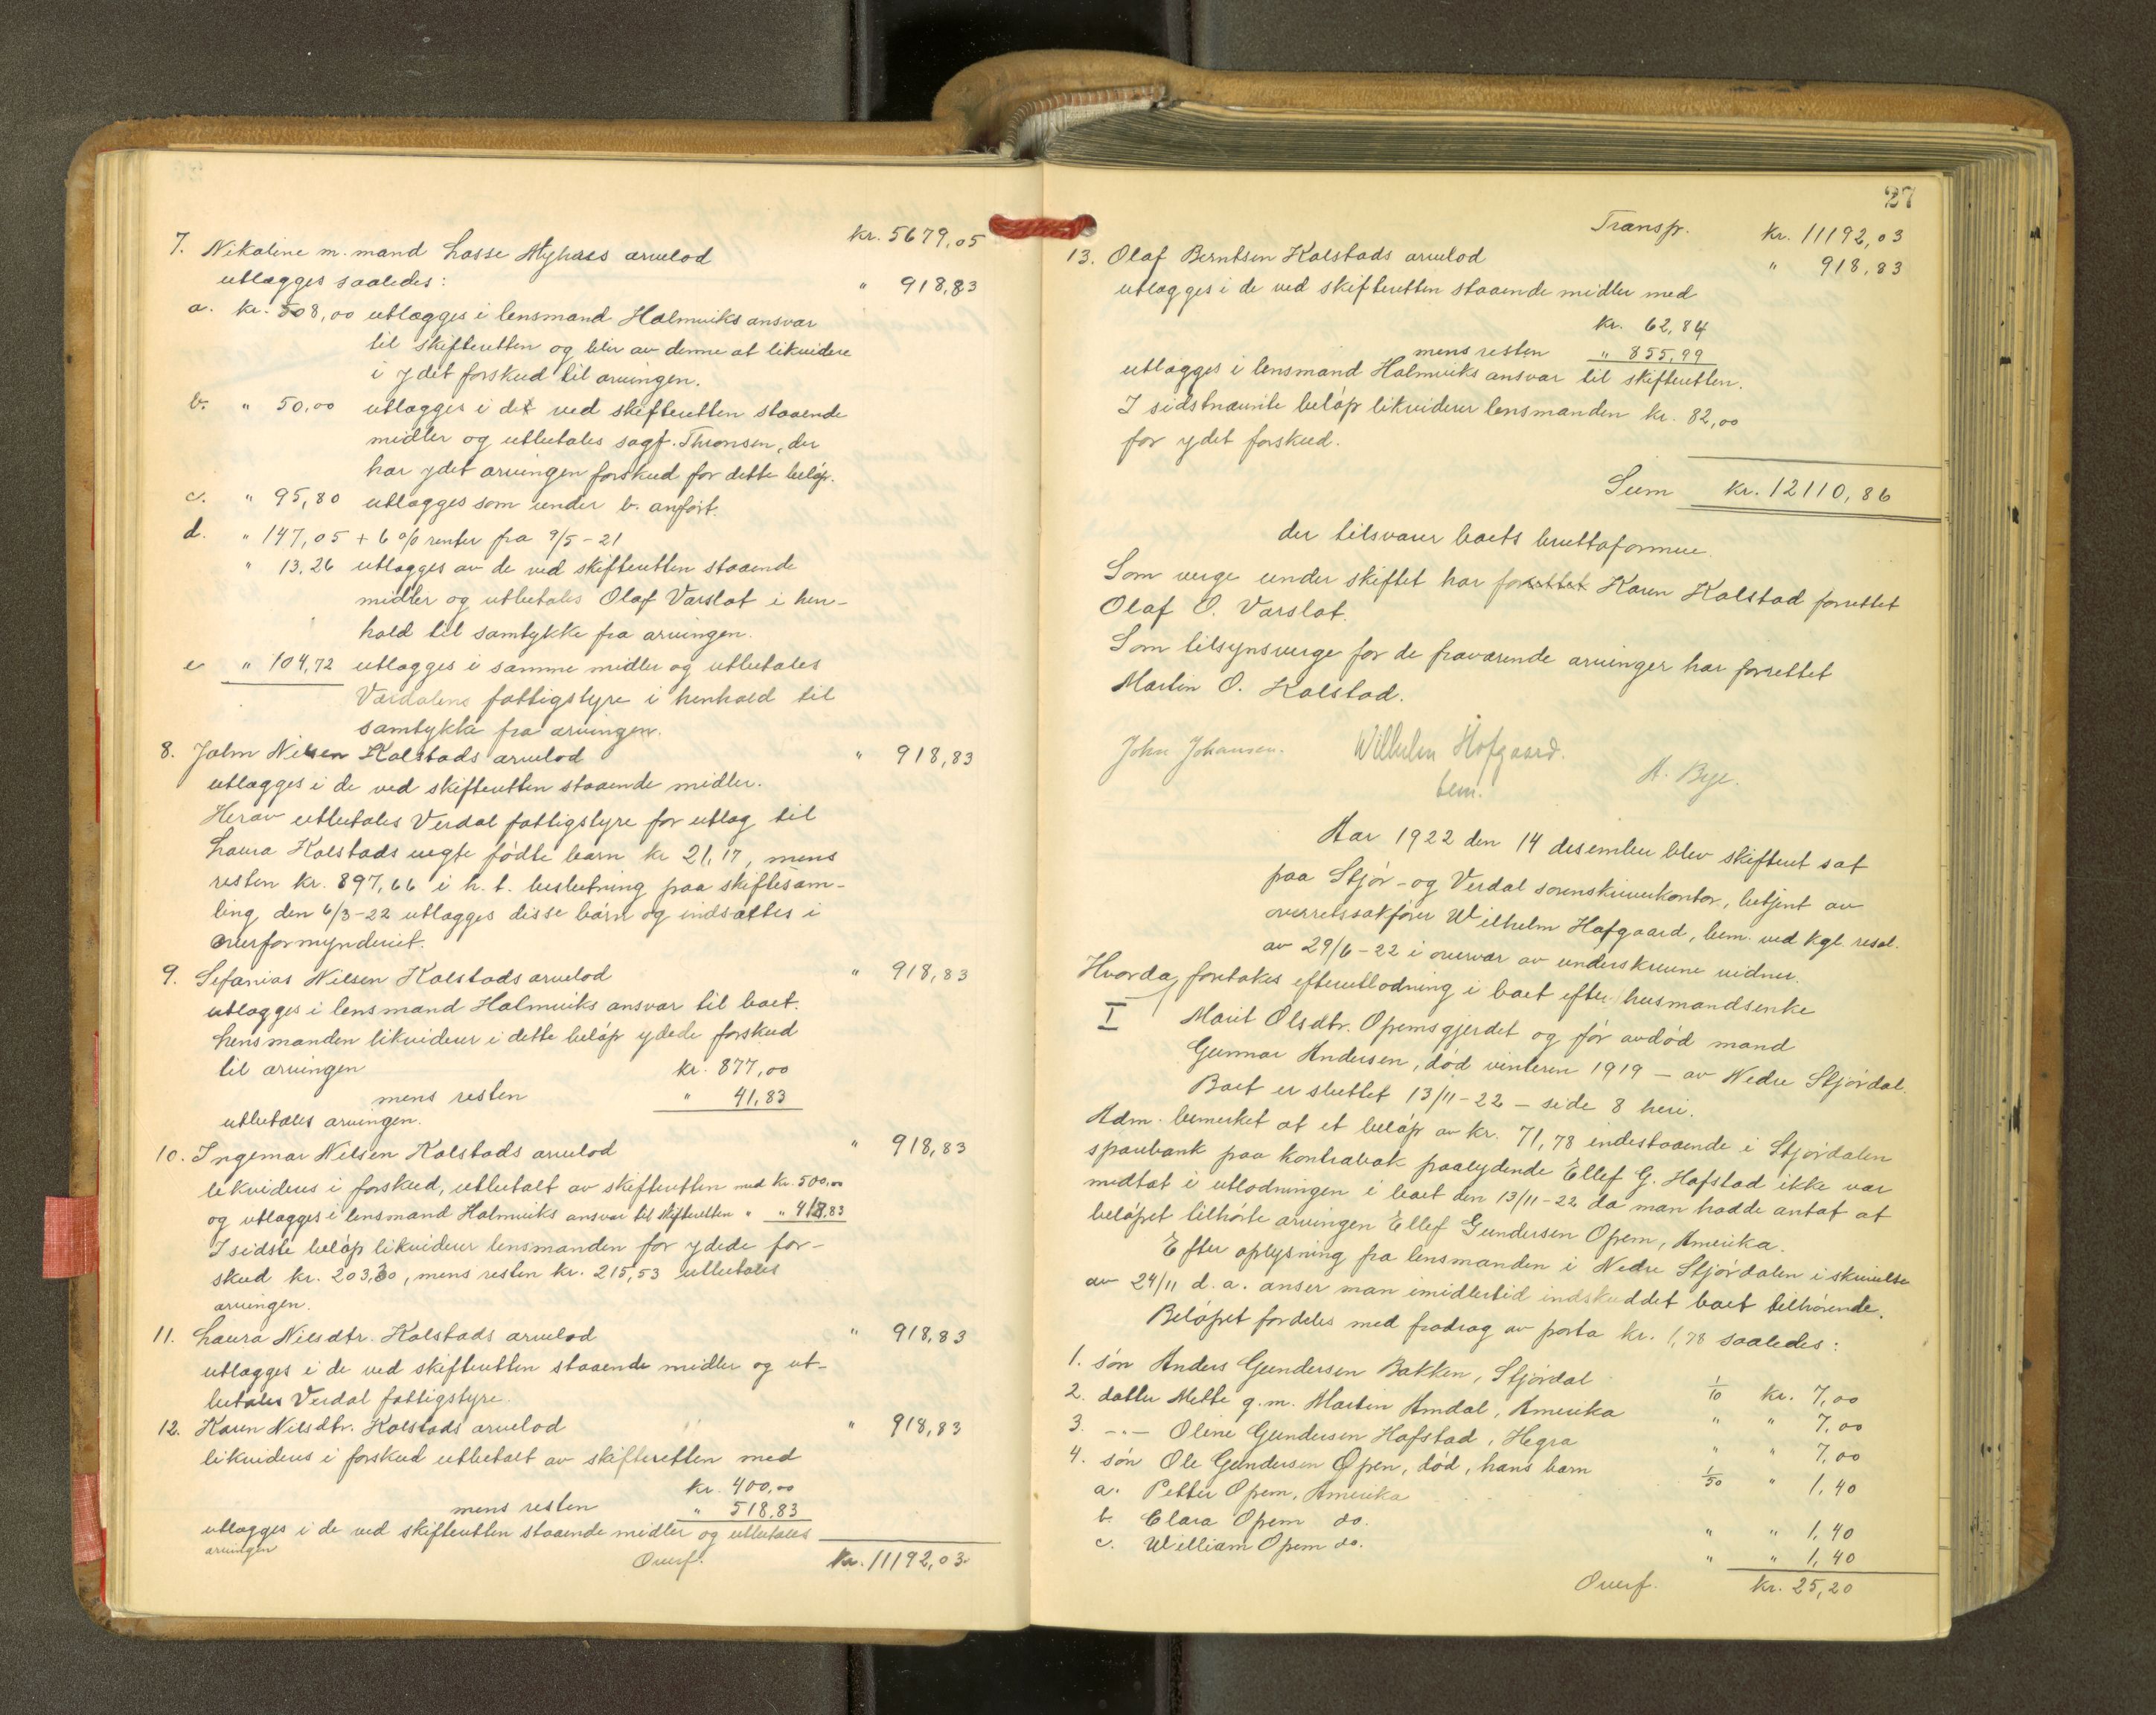 kr. 5679,05
7. Nikoline m. mand Lasse Myhres arvelod
utlægges saaledes: " 918,83
a. kr. 508,00 utlægges i lensmand Holmviks ansvar
til skifteretten og blir av denne at likvidere
i ydet forskud til arvingen.
b. " 50,00 utlægges i det ved skifteretten staaende
midler og utbetales sagf. Thronsen, der
har ydet arvingen forskud for dette beløp.
c. " 95,80 utlægges som under b. anført.
d. " 147,05 + 6 % renter fra 9/5-21
" 13.26 utlægges av de ved skifteretten staaende
midler og utbetales Olaf Varslot i hen-
hold til samtykke fra arvingen.
e " 104,72 utlægges i samme midler og utbetales
Værdalens fattigstyre i henhold til
samtykke fra arvingen.
8. Jalm Nilsen Kolstads arvelod " 918,83
utlægges i de ved skifteretten staaende midler.
Herav utbetales Verdal fattigstyre for utlæg til
Laura Kolstads uegte fødte barn kr 21,17, mens
resten kr. 897,66 i h. t. beslutning paa skiftesam-
ling den 6/3-22 utlægges disse børn og indsættes i
overformynderiet.
9. Sefanias Nilsen Kolstads arvelod " 918,83
utlægges i lensmand Holmviks ansvar til boet.
Lensmanden likviderer i dette beløp ydede forskud
til arvingen kr. 877,00
mens resten " 41,83
utbetales arvingen.
10. Ingemar Nilsen Kolstads arvelod " 918,83
likvideres i forskud, utbetalt av skifteretten med kr. 500,00
og utlægges i lensmand Holmviks ansvar til skifteretten " " 418,83
I sidste beløp likviderer lensmanden for ydede for-
skud kr. 203,30, mens resten kr. 215,53 utbetales
arvingen.
11. Laura Nilsdtr. Kolstads arvelod " 918,83
utlægges i de ved skifteretten staaende midler og ut-
betales Verdal fattigstyre.
12. Karen Nilsdtr. Kolstads arvelod " 918,83
likvideres i forskud utbetalt av skifteretten med
kr. 400,00
mens resten " 518,83
utlægges i de ved skifteretten staaende midler og utbetales
arvingen
Overf. Kr. 11192,03
27
Transp. kr. 11192,03
13. Olaf Berntsen Kolstads arvelod " 918,83
utlægges i de ved skifteretten staaende midler med
kr. 62,84
mens resten " 855,99
utlægges i lensmand Holmviks ansvar til skifteretten.
I sidstnævnte beløp likviderer lensmanden kr. 82,00
for ydet forskud.
Sum kr. 12110,86
der tilsvarer boets bruttoformue.
Som verge under skiftet har forrettet Karen Kolstad forrettet
Olaf O. Varslot.
Som tilsynsverge for de fraværende arvinger har forrettet
Martin O. Kolstad.
John Johansen. Wilhelm Hofgaard. A. Bye.
bem.
Aar 1922 den 14 desember blev skifteret sat
paa Stjør- og Verdal sorenskriverkontor, betjent av
overretssakfører Wilhelm Hofgaard, bem. ved kgl. resol.
av 29/6-22 i overvær av underskrevne vidner.
Hvorda foretokes efterutlodning i boet efter husmandsenke
I Marit Olsdtr. Opemsgjerdet og før avdød mand
Gunnar Andersen, død vinteren 1919 - av Nedre Stjørdal.
Boet er sluttet 13/11-22 - side 8 heri.
Adm. bemerket at et beløp av kr. 71,78 indestaaende i Stjørdalen
sparebank paa kontrabok paalydende Ellef G. Hofstad ikke var
medtat i utlodningen i boet den 13/11-22 da man hadde antat at
beløpet tilhørte arvingen Ellef Gundersen Opem, Amerika.
Efter oplysning fra lensmanden i Nedre Stjørdalen i skrivelse
av 24/11 d. a. anser man imidlertid indskuddet boet tilhørende.
Beløpet fordeles med fradrag av porto kr. 1,78 saaledes:
1. søn Anders Gundersen Bakken, Stjørdal 1/10 kr. 7,00
2. datter Mette g. m. Martin Amdal, Amerika " " 7,00
3. -"- Oline Gundersen Hofstad, Hegra " " 7,00
4. søn Ole Gundersen Open, død, hans barn
a. Petter Opem, Amerika 1/50 " 1,40
b. Clara Opem do. " " 1,40
c. William Opem do. " " 1,40
Overf. kr. 25,20